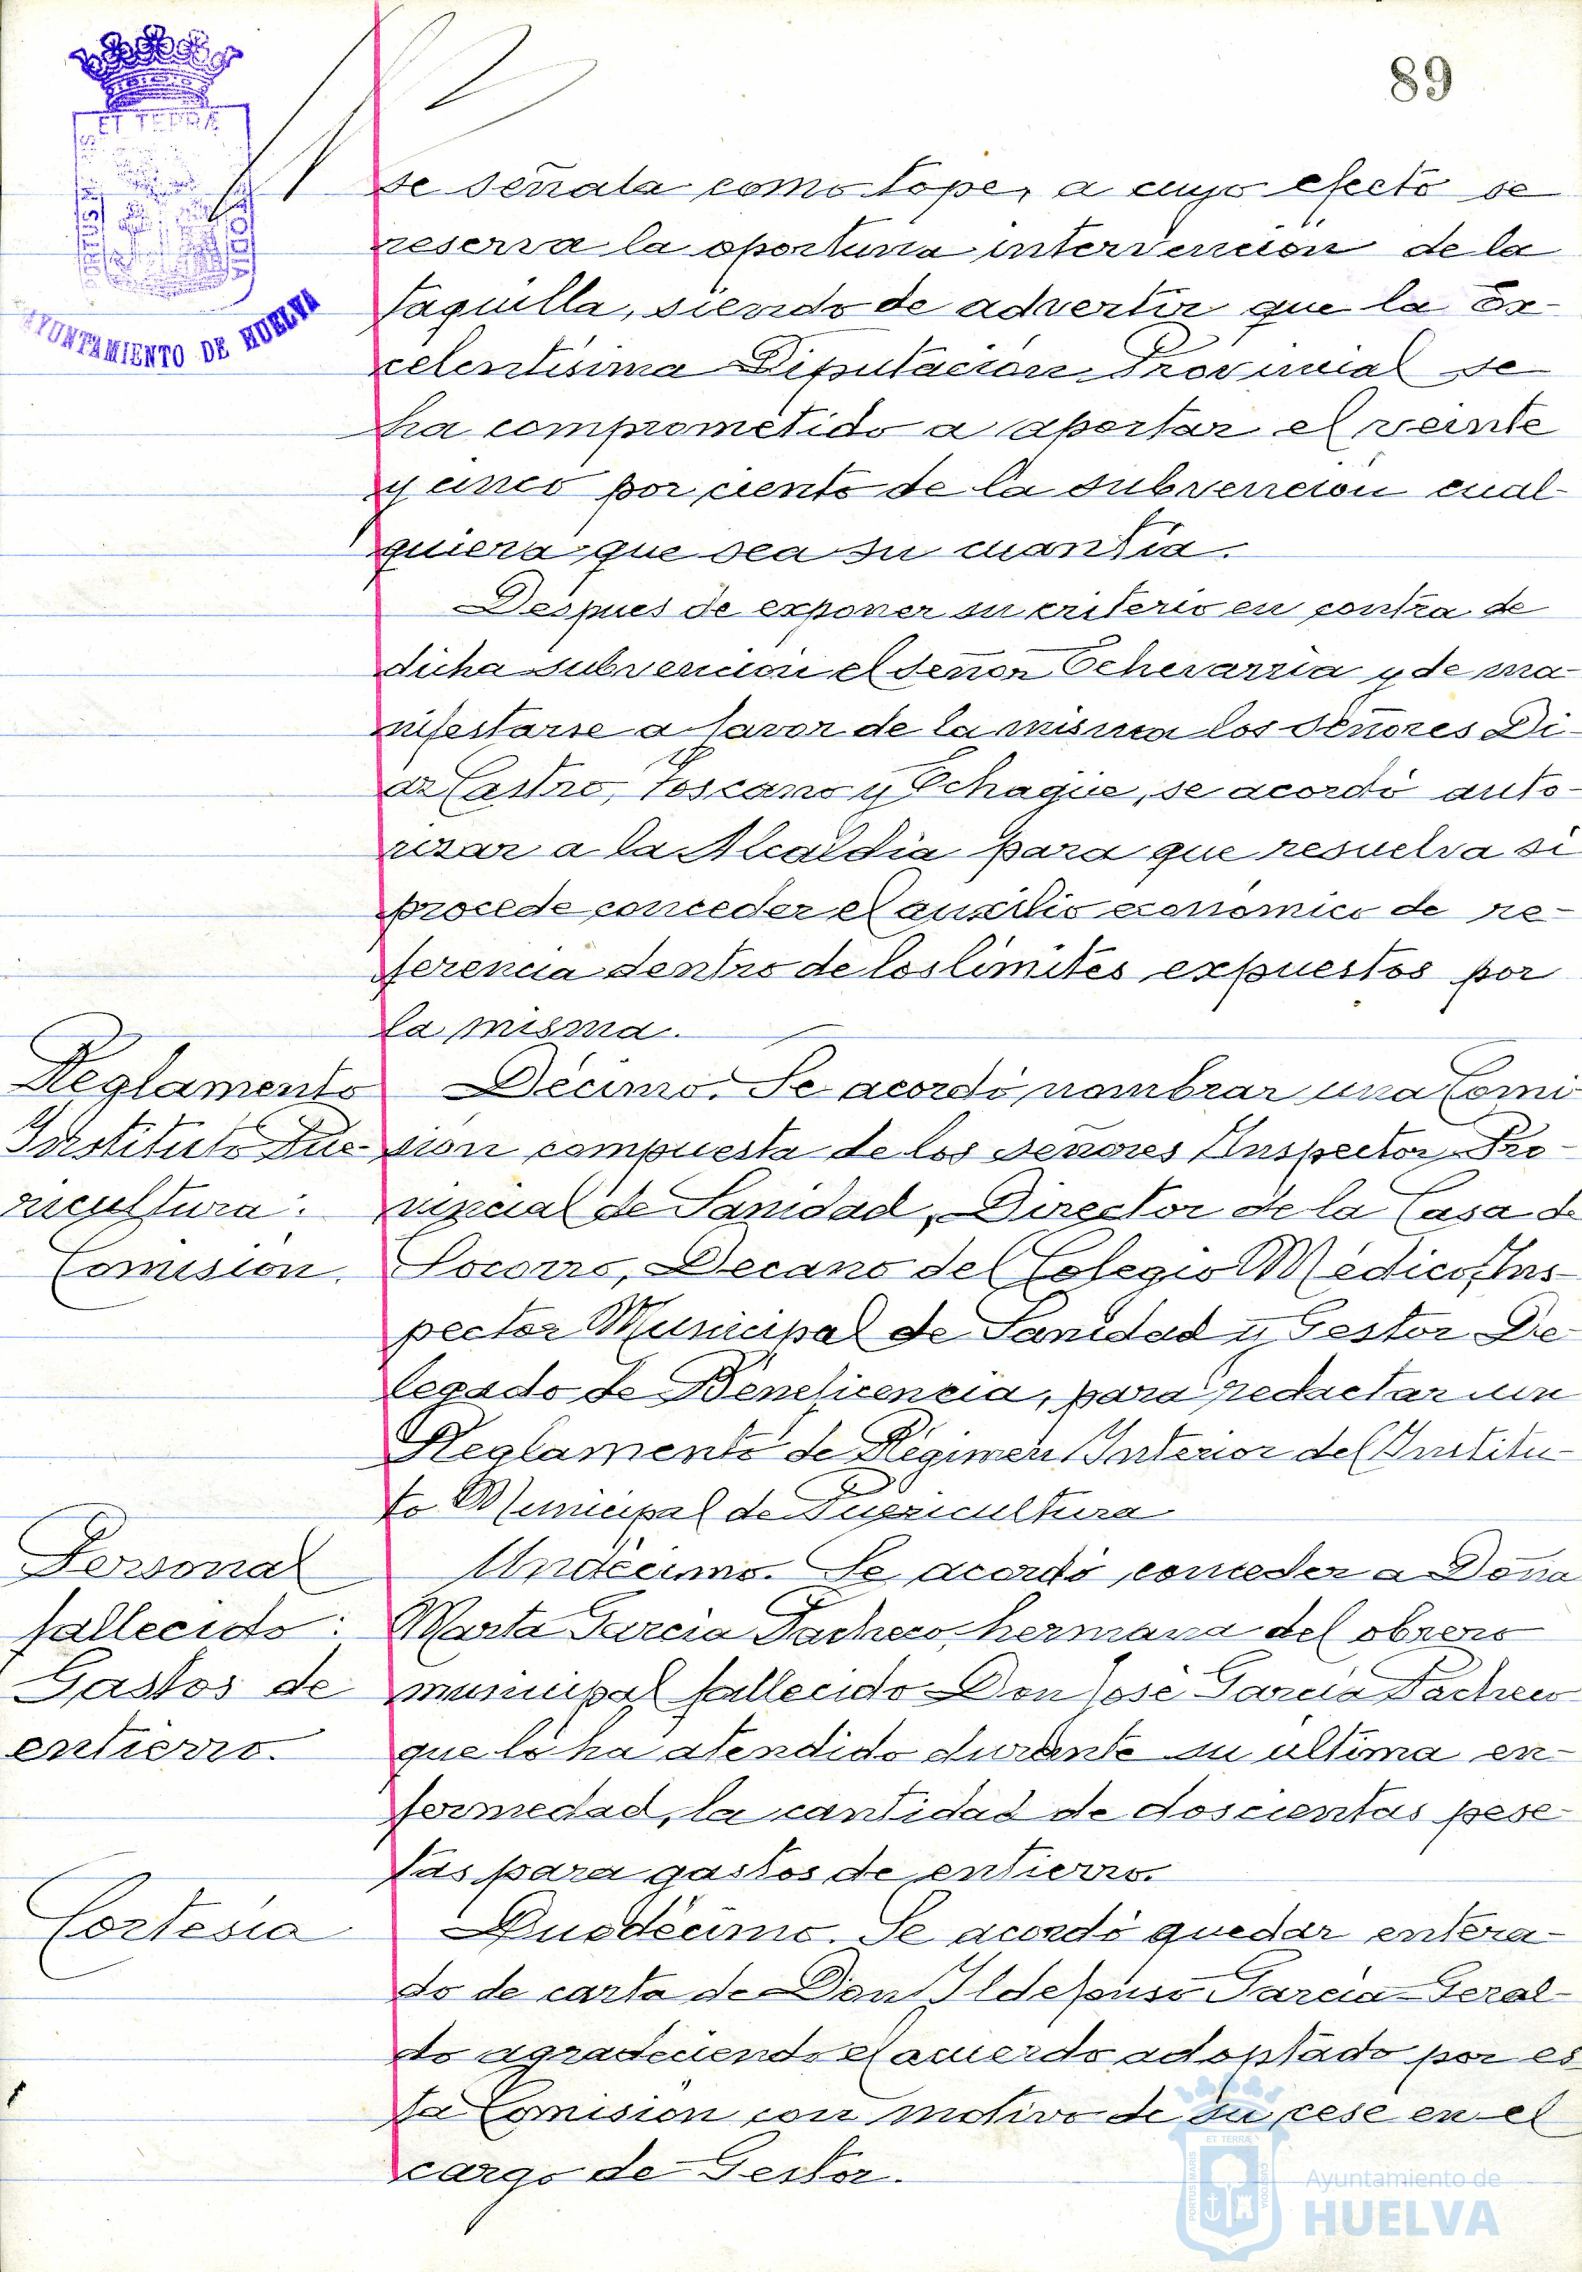 89
ET TERRÆ
AYUNTAMIENTO DE HUELVA
se señala como tope, a cuyo efecto se
reserva la oportuna intervención de la
taquilla, siendo de advertir que la Ex-
celentísima Diputación Provincial se
ha comprometido a aportar el veinte
y cinco por ciento de la subvención cual-
quiera que sea su cuantía.
Despues de exponer su criterio en contra de
dicha subvención el señor Echevarria y de ma-
nifestarse a favor de la misma los señores Di-
az Castro, Toscano y Echagüe, se acordó auto-
rizar a la Alcaldia para que resuelva si
procede conceder el auxilio económico de re-
ferencia dentro de los limites expuestos por
la misma.
Reglamento
Instituto Pue-
ricultura:
Comision.
Décimo. Se acordó nombrar una Comi
sión compuesta de los señores Inspector Pro-
vincial de Sanidad, Director de la Casa de
Socorro, Decano del Colegio Médico, Ins-
pector Municipal de Sanidad y Gestor De-
legado de Beneficencia, para redactar un
Reglamento de Régimen Interior del Institu-
to Municipal de Puericultura
Personal
fallecido:
Gastos de
entierro.
Undécimo. Se acordó conceder a Doña
Marta Garcia Pacheco, hermana del obrero
municipal fallecido Don José Garcia Pacheco
que lo ha atendido durante su ultima en-
fermedad, la cantidad de doscientas pese-
tas para gastos de entierro.
Cortesia
Duodécimo. Se acordó quedar entera-
do de carta de Don Ildefonso Garcia-Geral-
do agradeciendo el acuerdo adoptado por es
ta Comisión con motivo de su cese en el
cargo de Gestor.
ET TERRÆ
PORTUS MARIS
CUSTODIA
Ayuntamiento de
HUELVA